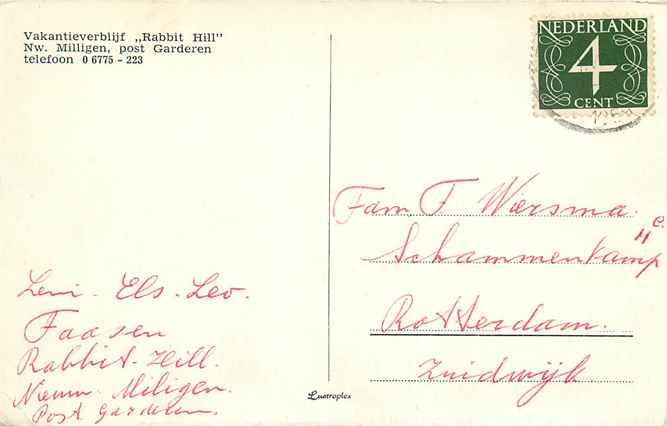 Vakantieverblijf „Rabbit Hill"
Nw. Milligen, post Garderen
telefoon 0 6775 - 223
NEDERLAND
4
CENT
Fam. F Wiersma.
Schammenkamp 11 c.
Rotterdam.
Zuidwijk
Leni - Els - Leo.
Faasen
Rabbit-Hill.
Nieuw. Miligen.
Post Garderen.
Lustroplex